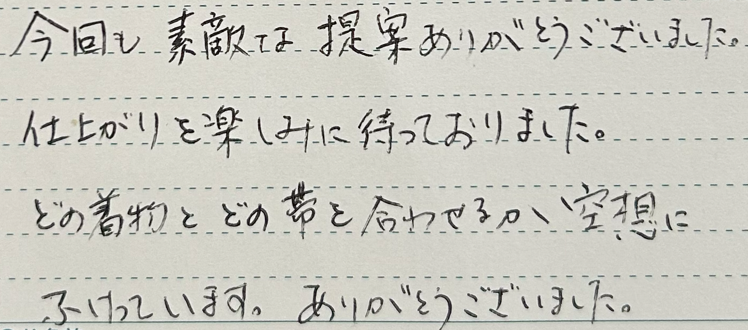 今回も素敵な提案ありがとうございました。
仕上がりを楽しみに待っておりました。
どの着物とどの帯を合わせるか、空想に
ふけっています。ありがとうございました。